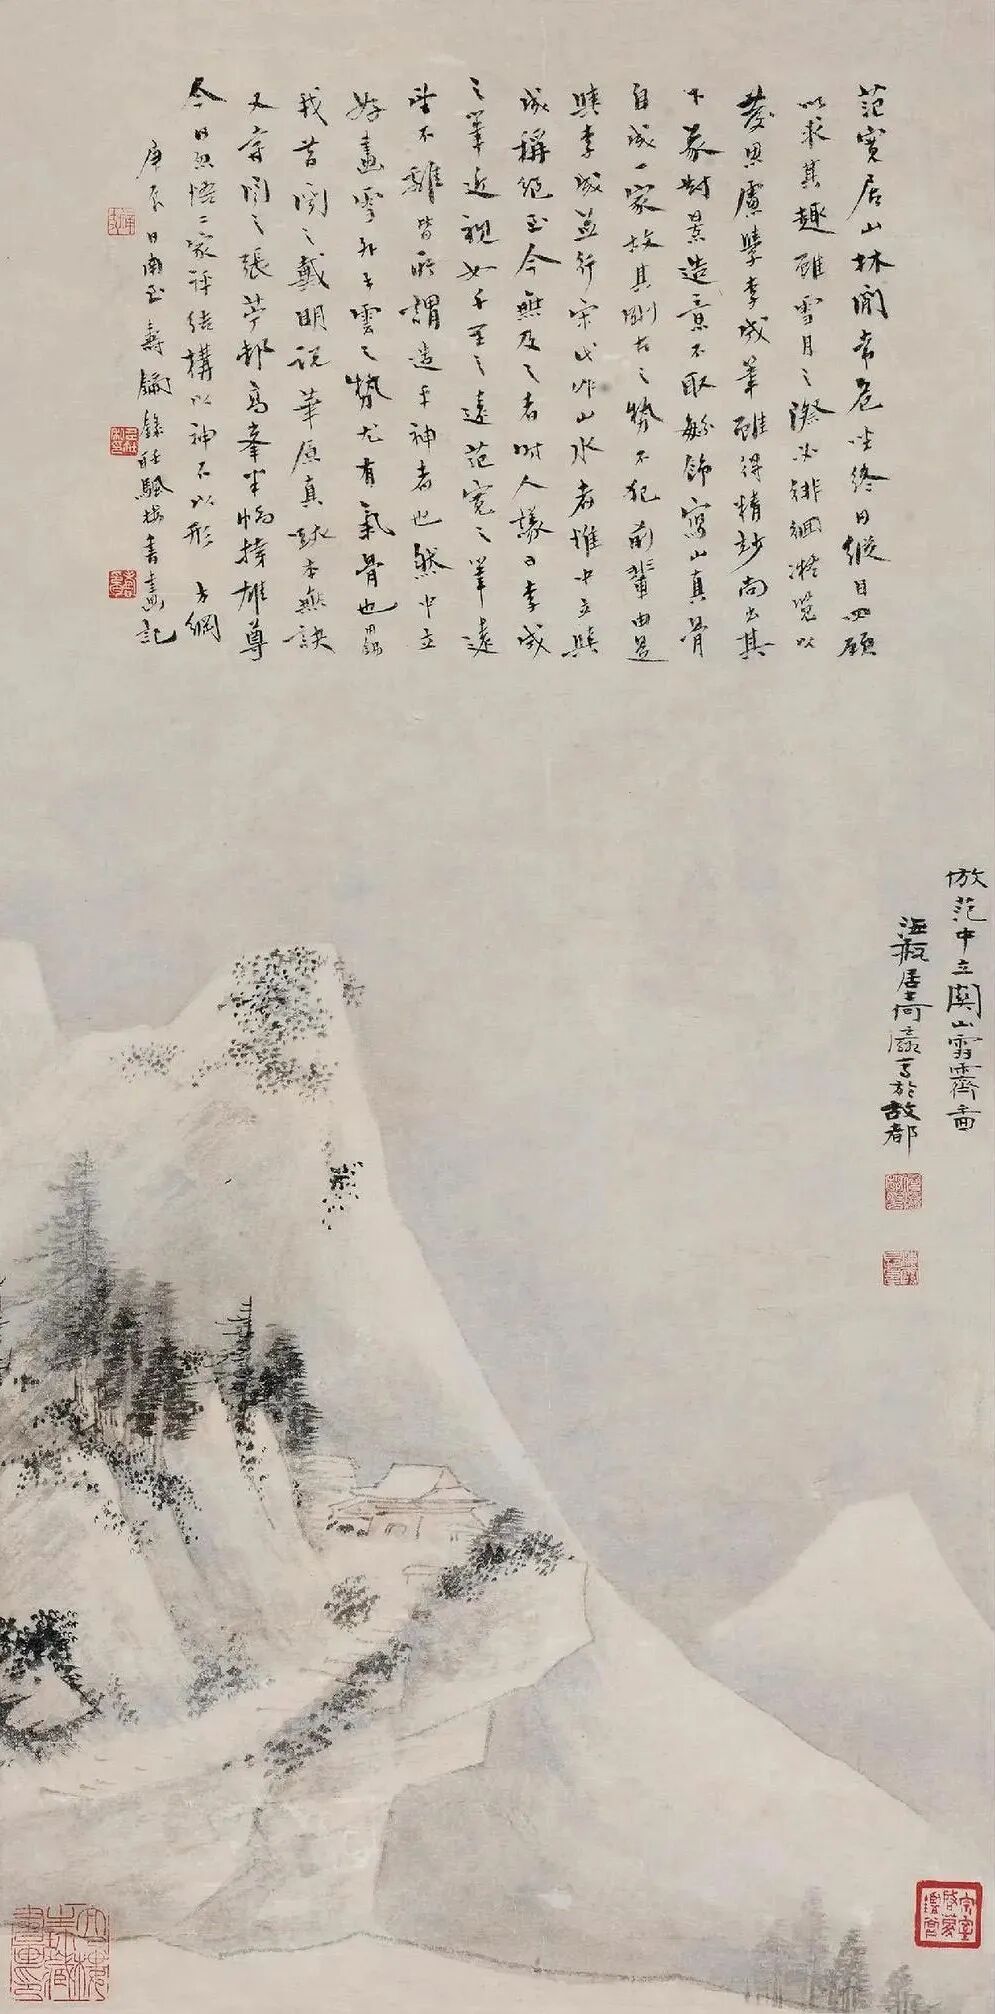 范寬居山林間常危坐終日縱目四顧
以求其趣雖雪月之際必徘徊凝覽以
發思慮學李成筆雖得精妙尚出其
下遂對景造意不取繁飾寫山真骨
自成一家故其剛古之勢不犯前輩由是
與李成並行宋代作山水者惟中立與
成稱絕至今無及之者時人議曰李成
之筆近視如千里之遠范寬之筆遠
望不離皆所謂造乎神者也然中立
好畫雪雲之勢尤有氣骨也
我昔聞之戴明說華原真跡本無訣
又嘗聞之張都高峯半幅撐雄尊
今日悟二家評結構以神不以形 方綱
庚辰日南至壽錄於梅書畫記
倣范中立關山雪霽圖
居士寫於故都